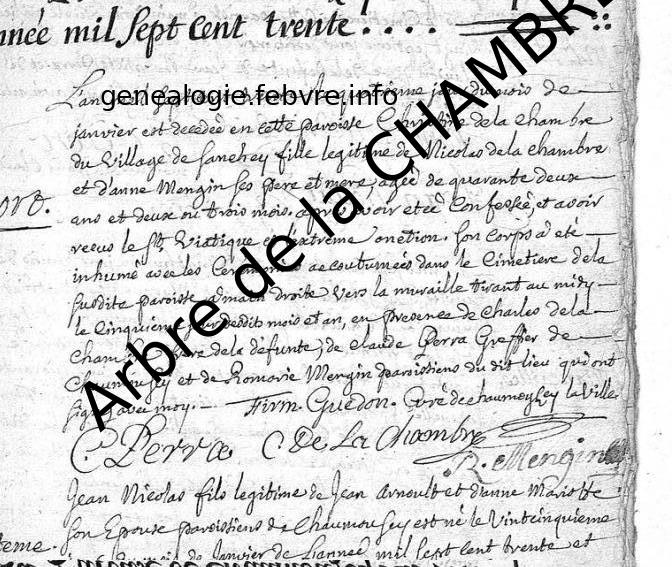 année mil Sept Cent trente . . . .
genealogie.febvre.info
Arbre de la CHAMBRE
L'an
quatrieme jour du mois de
janvier est decedée en cette paroisse de la Chambre
du Village de Sanchey fille legitime de Nicolas de la Chambre
et d'anne Mengin ses pere et mere, agée de quarante deux
ans et deux ou trois mois. apres avoir eté Confessée, et avoir
receus le St. Viatique et l'extrême onction. Son corps a eté
inhumé avec les Ceremonies accoutumées dans le Cimetiere de la
susdite paroisse a main droite Vers la muraille tirant au midy
le Cinquieme jour desdits mois et an, en presence de Charles de la
Chambre frere de la défunte, de Claude Perra Greffier de
Chaumousey et de Romaric Mengin paroissiens du dit lieu qui ont
signé avec moy. Firm. Guedon. Curé de chaumousey la Ville
C Perra C De La Chambre
R. Mengin
Jean Nicolas fils legitime de Jean Arnoult et d'anne Mariotte
Son Epouse paroissiens de Chaumousey est né le Vintcinquieme
teme.
de Janvier de L'année mil Sept Cent trente et